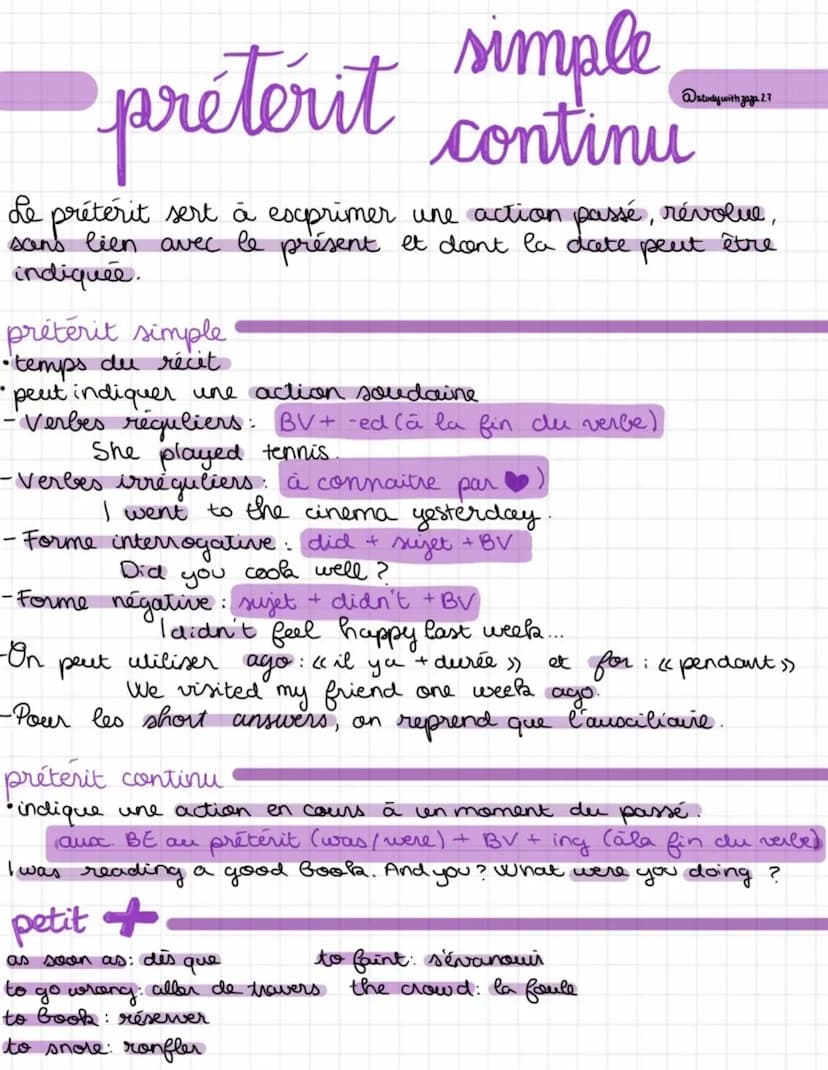 prétérit simple
continu
@studywithzaza.27
Le prétérit sert à exprimer une action passé, révolue,
sans lien avec le présent et dont la date peut être
indiquée.
prétérit simple
•temps du récit
•peut indiquer une action soudaine
-Verbes réguliers: BV+ -ed (à la fin du verbe)
She played tennis.
-Verbes irréguliers: à connaitre par ♥)
I went to the cinema yesterday.
-Forme interrogative: did + sujet +BV
Did you cook well?
-Forme négative: sujet + didn't +BV
I didn't feel happy last week...
-On peut utiliser ago: «il ya +durée» et for: «pendant»
We visited my friend one week ago.
-Pour les short answers, on reprend que l'auxiliaire.
prétérit continu
•indique une action en cours à un moment du passé.
aux. BE au prétérit (was/were) + BV + ing (àla fin du verbe)
I was reading a good book. And you? What were you doing ?
petit +
as soon as: dès que to faint: s'évanouir
to go wrong: aller de travers the crowd: la foule
to book: réserver
to snore: ronfler